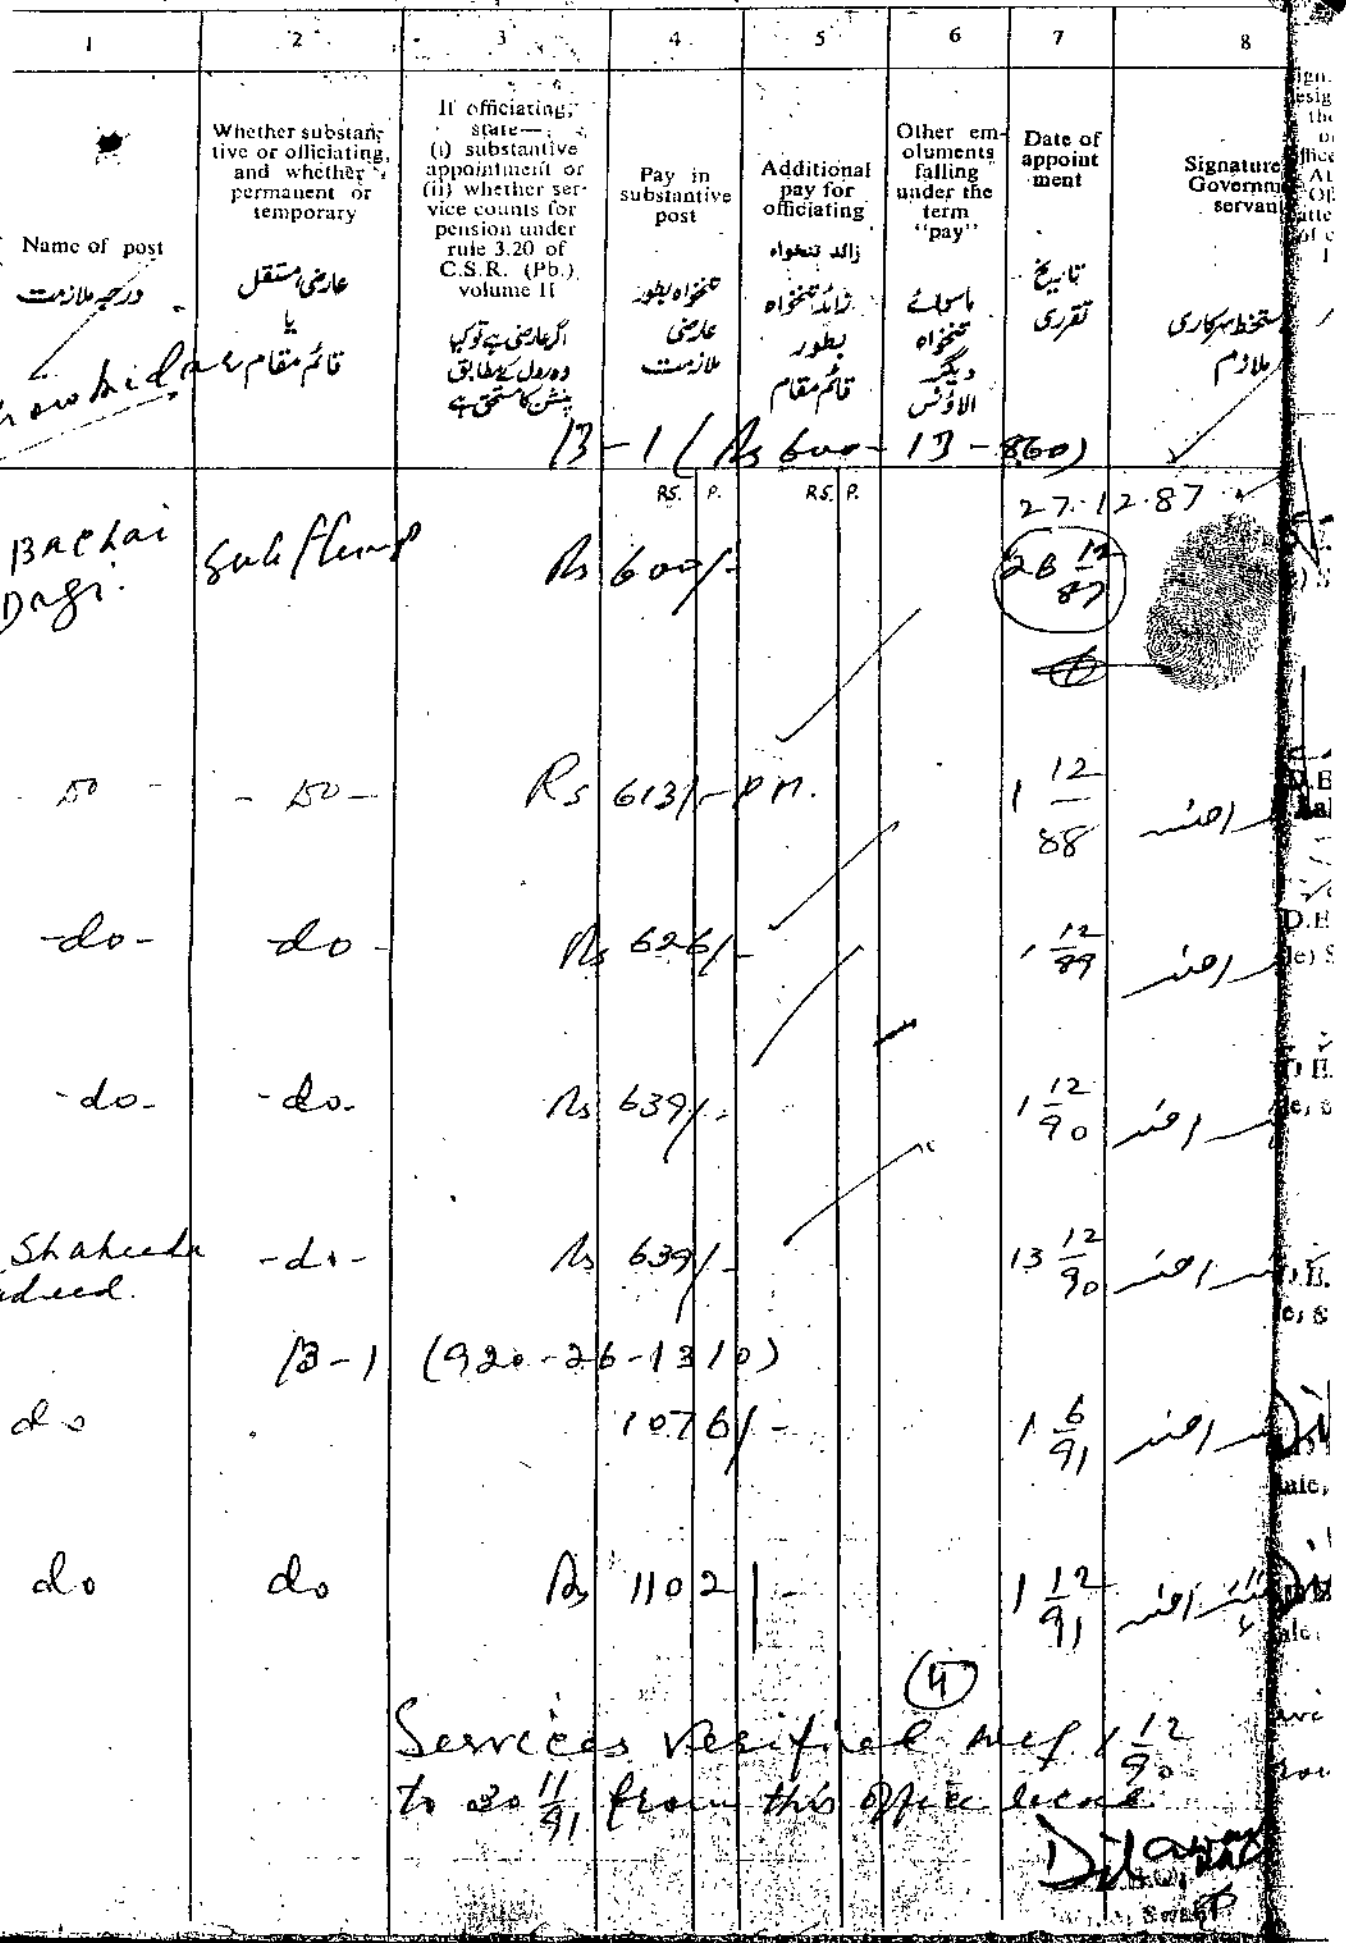 1 2 3 4 5 6 7 8
Name of post
درجہ ملازمت
Whether substan-
tive or officiating,
and whether
permanent or
temporary
عارضی مستقل
یا
قائم مقام
If officiating,
state—
(i) substantive
appointment or
(ii) whether ser-
vice counts for
pension under
rule 3.20 of
C.S.R. (Pb.),
volume II
اگر عارضی ہے تو کیا
وہ رول کے مطابق
پنشن کا مستحق ہے
Pay in
substantive
post
تنخواہ بطور
عارضی
ملازمت
Additional
pay for
officiating
زائد تنخواہ
زائد تنخواہ
بطور
قائم مقام
Other em-
oluments
falling
under the
term
"pay"
ماسوائے
تنخواہ
دیگر
الاؤنس
Date of
appoint
ment
تاریخ
تقرری
Signature
Governm
servant
دستخط سرکاری
ملازم
B-1 (Rs 600-13-860)
RS. P. RS. P.
27.12.87
Rs 600/- 28 12/87
Do - Do - Rs 613/- P.M. 1 12/88
-do- -do- Rs 626/- 1 12/89
-do- -do- Rs 639/- 1 12/90
Shaheeda -do- Rs 639/- 13 12/90
B-1 (920-26-1310)
do 1076/- 1 6/91
do do Rs 1102/- 1 12/91
4
Services verified wef 1 12/90
to 30 11/91 from this office
Dilawar